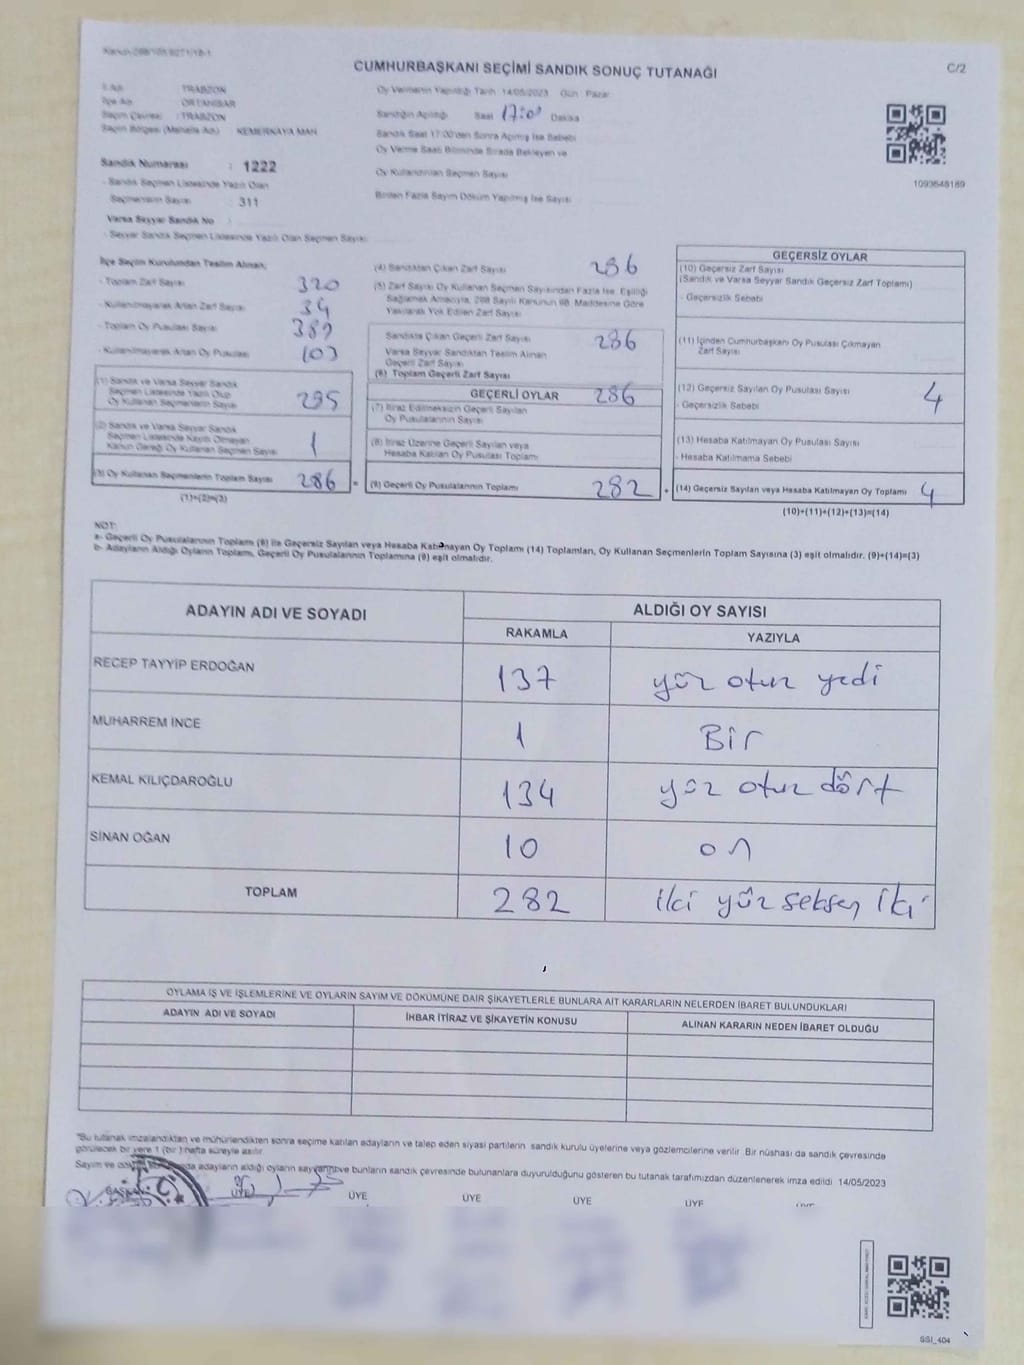 CUMHURBAŞKANI SEÇİMİ SANDIK SONUÇ TUTANAĞI
C/2
İl Adı : TRABZON
İlçe Adı : ORTAHİSAR
Seçim Çevresi : TRABZON
Seçim Bölgesi (Mahalle Adı) : KEMERKAYA MAH.
Sandık Numarası : 1222
- Sandık Seçmen Listesinde Yazılı Olan
Seçmenlerin Sayısı : 311
Varsa Seyyar Sandık No :
- Seyyar Sandık Seçmen Listesinde Yazılı Olan Seçmen Sayısı:
Oy Vermenin Yapıldığı Tarih : 14/05/2023 Gün : Pazar
Sandığın Açıldığı Saat 17:00 Dakika
Sandık Saat 17:00'den Sonra Açılmış İse Sebebi
Oy Verme Saati Bitiminde Sırada Bekleyen ve
Oy Kullandırılan Seçmen Sayısı
Birden Fazla Sayım Döküm Yapılmış İse Sayısı
1093648189
İlçe Seçim Kurulundan Teslim Alınan;
- Toplam Zarf Sayısı 320
- Kullanılmayarak Artan Zarf Sayısı 34
- Toplam Oy Pusulası Sayısı 389
- Kullanılmayarak Artan Oy Pusulası 103
(1) Sandık ve Varsa Seyyar Sandık
Seçmen Listesinde Yazılı Olup
Oy Kullanan Seçmenlerin Sayısı 295
(2) Sandık ve Varsa Seyyar Sandık
Seçmen Listesinde Kayıtlı Olmayan
Kanun Gereği Oy Kullanan Seçmen Sayısı 1
(3) Oy Kullanan Seçmenlerin Toplam Sayısı 286 =
(1)+(2)=(3)
(4) Sandıktan Çıkan Zarf Sayısı 286
(5) Zarf Sayısı Oy Kullanan Seçmen Sayısından Fazla İse, Eşitliği
Sağlamak Amacıyla, 298 Sayılı Kanunun 98. Maddesine Göre
Yakılarak Yok Edilen Zarf Sayısı
Sandıkta Çıkan Geçerli Zarf Sayısı 286
Varsa Seyyar Sandıktan Teslim Alınan
Geçerli Zarf Sayısı
(6) Toplam Geçerli Zarf Sayısı
GEÇERLİ OYLAR 286
(7) İtiraz Edilmeksizin Geçerli Sayılan
Oy Pusulalarının Sayısı
(8) İtiraz Üzerine Geçerli Sayılan veya
Hesaba Katılan Oy Pusulası Toplamı
(9) Geçerli Oy Pusulalarının Toplamı 282 +
GEÇERSİZ OYLAR
(10) Geçersiz Zarf Sayısı
(Sandık ve Varsa Seyyar Sandık Geçersiz Zarf Toplamı)
- Geçersizlik Sebebi
(11) İçinden Cumhurbaşkanı Oy Pusulası Çıkmayan
Zarf Sayısı
(12) Geçersiz Sayılan Oy Pusulası Sayısı 4
- Geçersizlik Sebebi
(13) Hesaba Katılmayan Oy Pusulası Sayısı
- Hesaba Katılmama Sebebi
(14) Geçersiz Sayılan veya Hesaba Katılmayan Oy Toplamı 4
(10)+(11)+(12)+(13)=(14)
NOT:
a- Geçerli Oy Pusulalarının Toplamı (9) ile Geçersiz Sayılan veya Hesaba Katılmayan Oy Toplamı (14) Toplamları, Oy Kullanan Seçmenlerin Toplam Sayısına (3) eşit olmalıdır. (9)+(14)=(3)
b- Adayların Aldığı Oyların Toplamı, Geçerli Oy Pusulalarının Toplamına (9) eşit olmalıdır.
ADAYIN ADI VE SOYADI
ALDIĞI OY SAYISI
RAKAMLA YAZIYLA
RECEP TAYYİP ERDOĞAN 137 yüz otuz yedi
MUHARREM İNCE 1 Bir
KEMAL KILIÇDAROĞLU 134 yüz otuz dört
SİNAN OĞAN 10 on
TOPLAM 282 iki yüz seksen iki
OYLAMA İŞ VE İŞLEMLERİNE VE OYLARIN SAYIM VE DÖKÜMÜNE DAİR ŞİKAYETLERLE BUNLARA AİT KARARLARIN NELERDEN İBARET BULUNDUKLARI
ADAYIN ADI VE SOYADI İHBAR İTİRAZ VE ŞİKAYETİN KONUSU ALINAN KARARIN NEDEN İBARET OLDUĞU
"Bu tutanak imzalandıktan ve mühürlendikten sonra seçime katılan adayların ve talep eden siyasi partilerin sandık kurulu üyelerine veya gözlemcilerine verilir. Bir nüshası da sandık çevresinde
görülecek bir yere 1 (bir) hafta süreyle asılır.
Sayım ve döküm sonucunda adayların aldığı oyların sayısını ve bunların sandık çevresinde bulunanlara duyurulduğunu gösteren bu tutanak tarafımızdan düzenlenerek imza edildi. 14/05/2023
BAŞKAN ÜYE ÜYE ÜYE ÜYE ÜYE
SSI_404